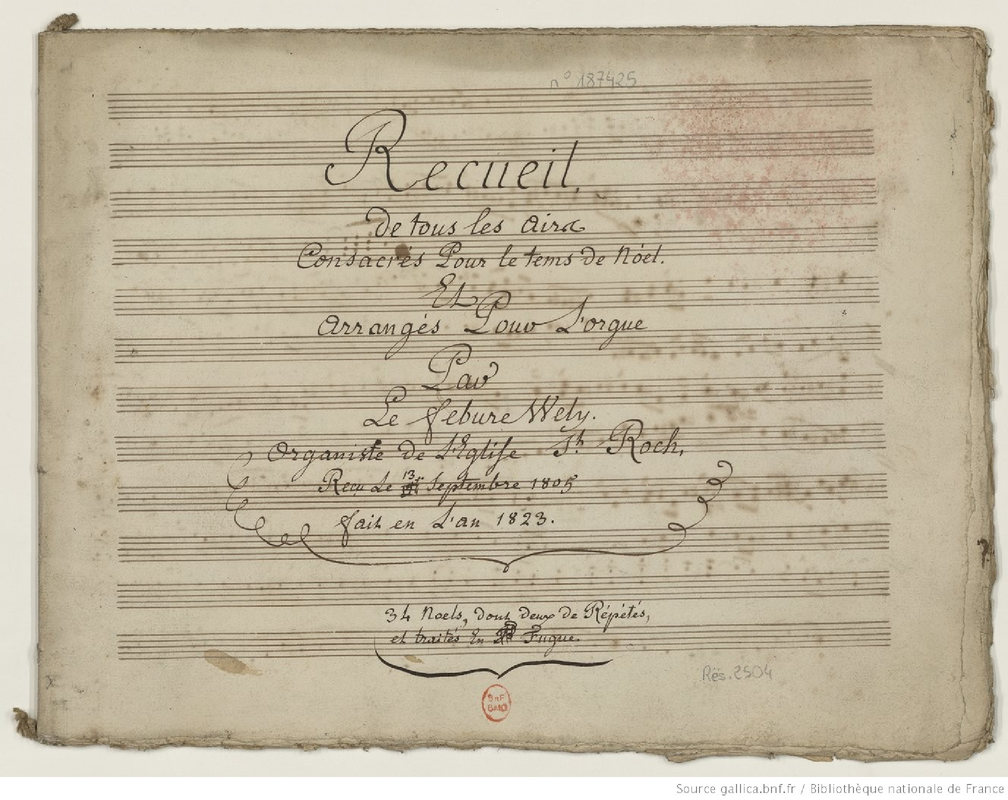 n° 187425
Recueil.
de tous les airs
Consacrés Pour le tems de Nóel.
Et
arrangés Pour L'orgue
Par
Le febure Wely.
Organiste de L'Eglise St Roch,
Recu Le 13 Septembre 1805
fait en L'an 1823.
34 Noels, dont deux de Répétés,
et traités En Fugue.
Rés. 2504
BnF
Source gallica.bnf.fr / Bibliothèque nationale de France